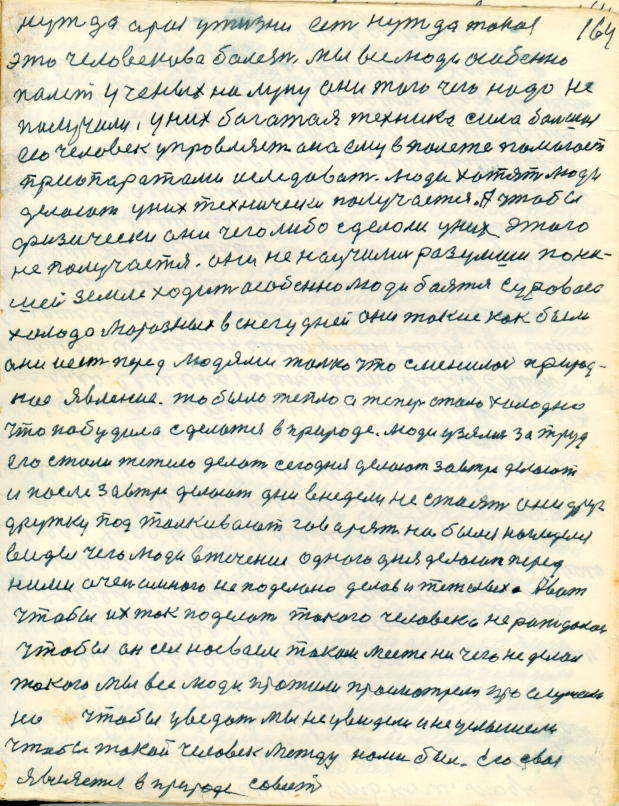 нужда ... у жизни ест нужда такая 164
это человекова болезн. мы все люди особенно
... ученых на луну они того чего надо не
получили, у них багатая техника сила большая
его человек управляет она ему в полете помогает
приопаратами иследоват. люди хотят люди
делают у них технически получается. А чтобы
физически они чего либо сделали у них этого
не получается. они не научилис разумши по на-
шей земле ходит особенно люди баятся суровоо
холода морозных в снегу дней они такие как были
они ест перед людями толко что сменилос природ-
ное явление. то было тепло а тепер стало холодно
что побудила сделатся в природе. люди узялис за труд
его стали тежело делат сегодня делают завтра делают
и после завтра делают дни в недели не стаят они друг
дружку под толкивают гаварят на были
видел чего люди в течении одного дня делают перед
ними очен много не поделано делов и тежолых. А вот
чтобы их так поделат такого человека не
чтобы он сел на своем таком месте ничего не делал
такого мы все люди прожили просмотрели прослушали
но чтобы уведат мы не увидели и не услышели
чтобы такой человек между нами был. его своя
является в природе совет